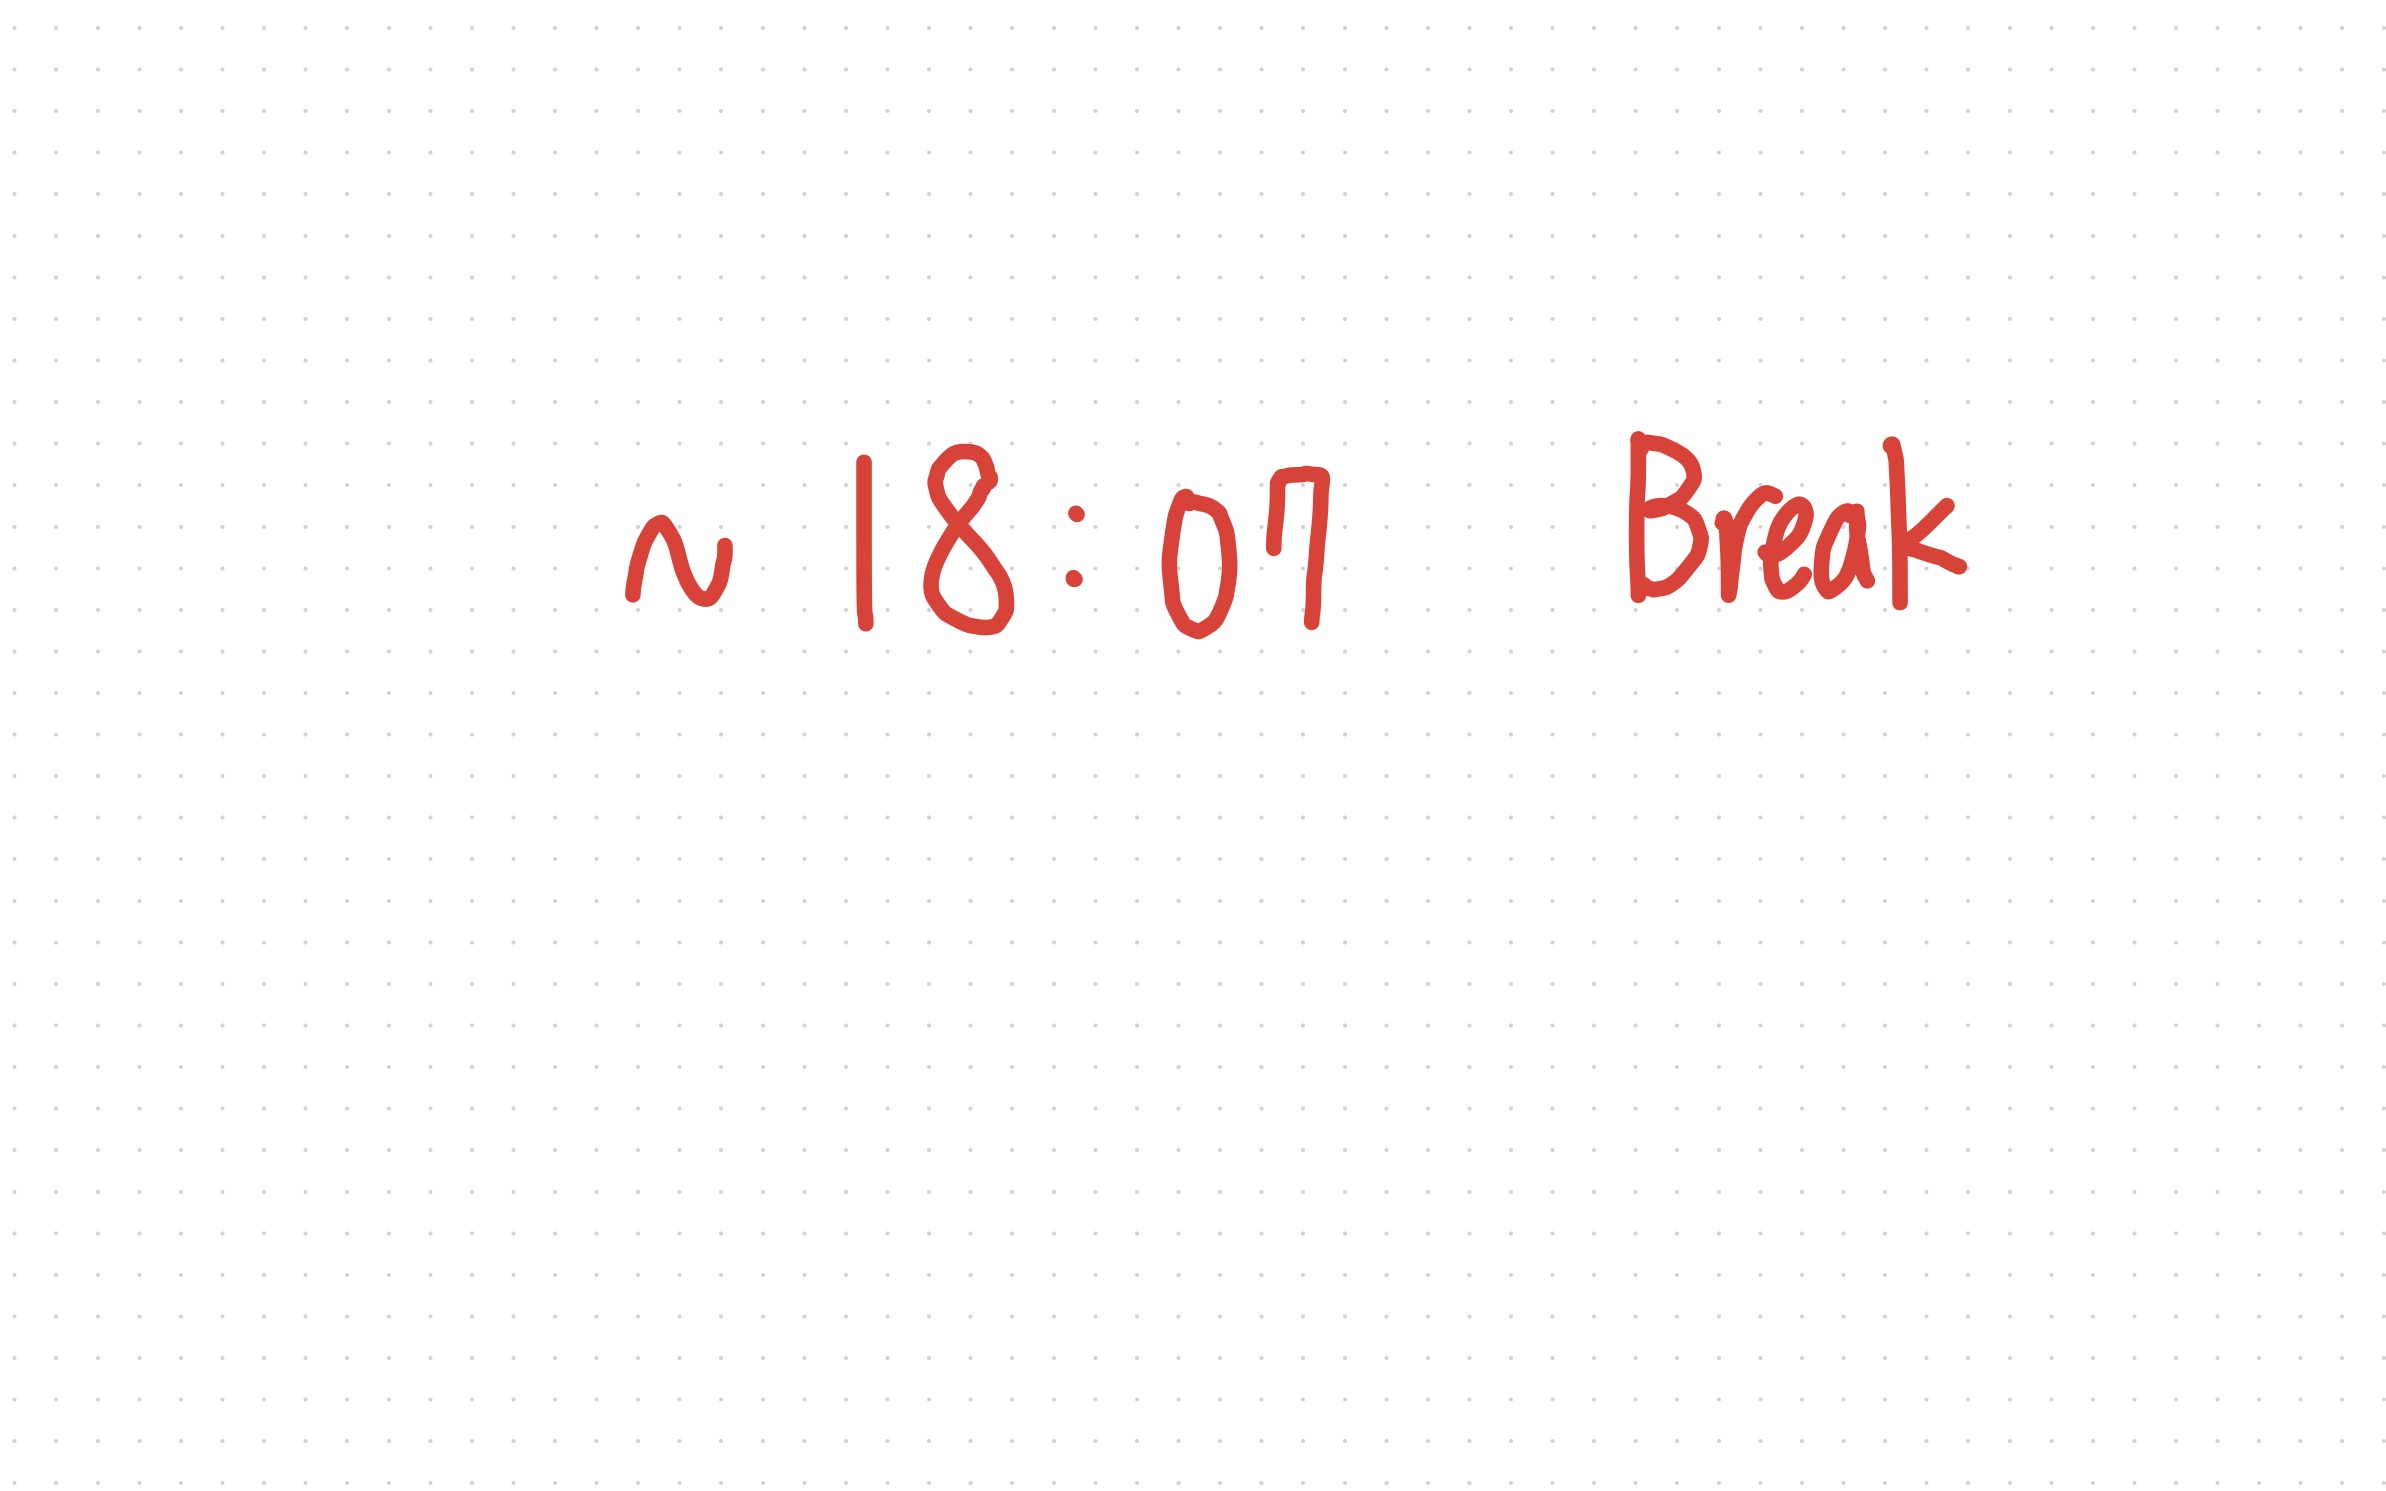 ~ 18:07 Break